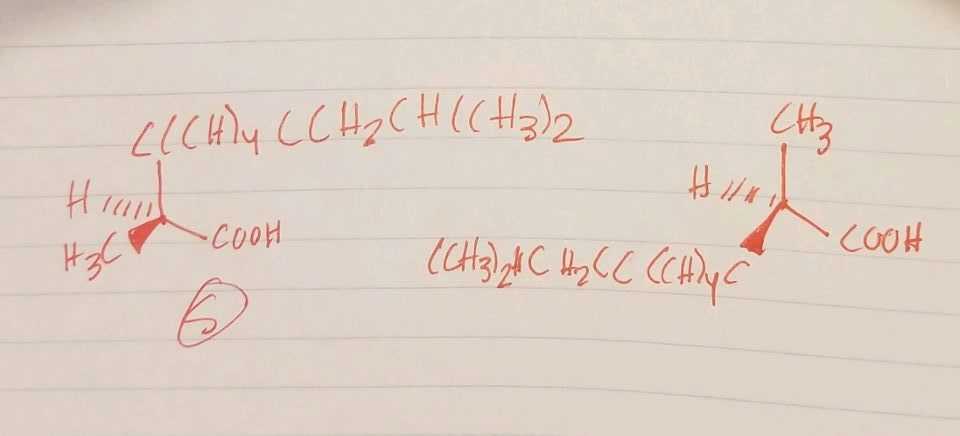 C((CH)4 CCH2CH((CH3)2
H
H3C
COOH
6
CH3
H
COOH
(CH3)2HC H2CC (CH)4C